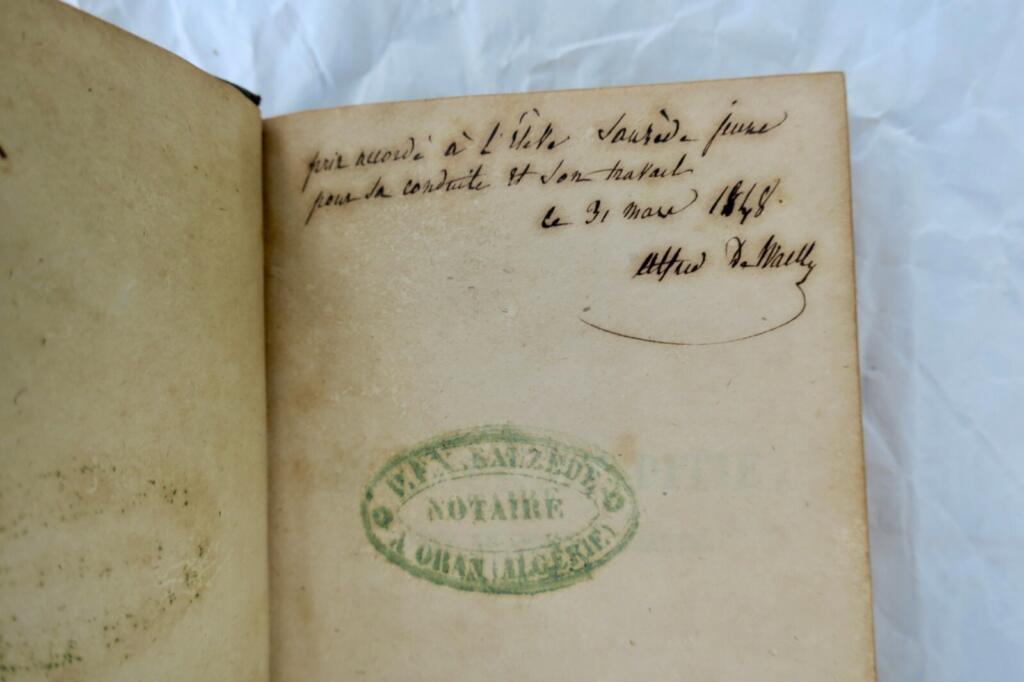 prix accordé à l'Élève Sauzède jeune
pour sa conduite et son travail
le 31 mars 1848.
Alfred De Wailly
F. FX. SAUZEDE,
NOTAIRE
A ORAN (ALGÉRIE.)